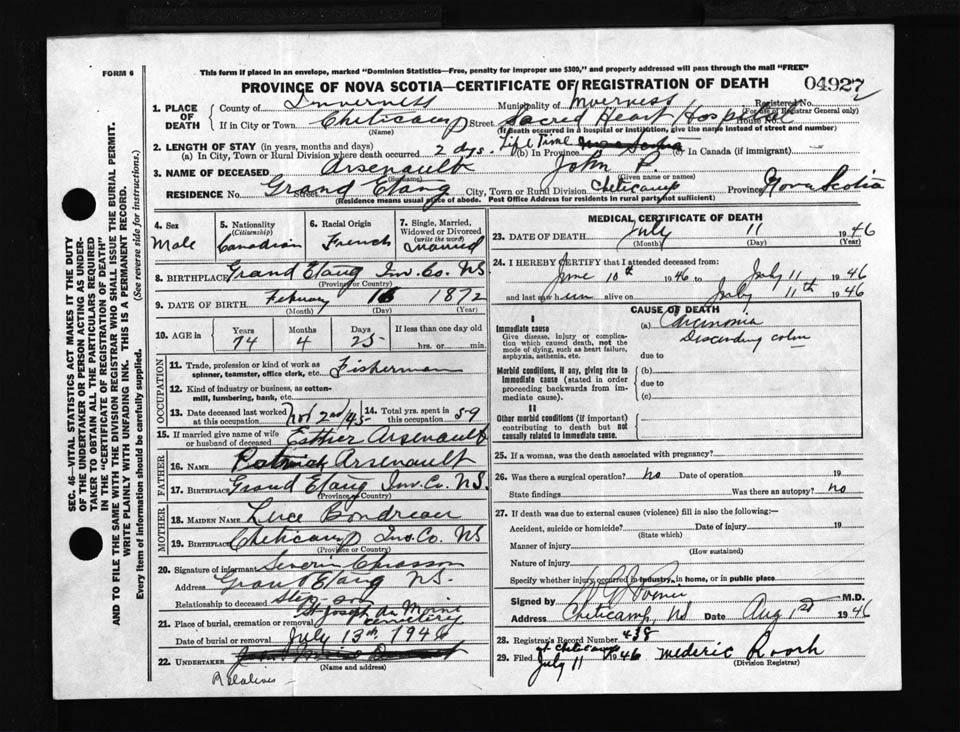 FORM 6
This form if placed in an envelope, marked "Dominion Statistics—Free, penalty for improper use $300," and properly addressed will pass through the mail "FREE"
PROVINCE OF NOVA SCOTIA—CERTIFICATE OF REGISTRATION OF DEATH
04927
1. PLACE OF DEATH
County of Inverness Municipality of Inverness Registered No.
(For use of Registrar General only)
If in City or Town Cheticamp Street Sacred Heart Hospital House No.
(Name) (If death occurred in a hospital or institution, give the name instead of street and number)
2. LENGTH OF STAY (in years, months and days)
(a) In City, Town or Rural Division where death occurred 2 dys. (b) In Province Life Time (c) In Canada (if immigrant)
3. NAME OF DECEASED Arsenault John P.
(Surname) (Given name or names)
RESIDENCE No. Street Grand Etang City, Town or Rural Division Cheticamp Province Nova Scotia
(Residence means usual place of abode. Post Office Address for residents in rural parts not sufficient)
4. Sex Male
5. Nationality (Citizenship) Canadian
6. Racial Origin French
7. Single, Married, Widowed or Divorced (write the word) Married
8. BIRTHPLACE Grand Etang Inv. Co. NS
(Province or Country)
9. DATE OF BIRTH February 16 1872
(Month) (Day) (Year)
10. AGE in Years 74 Months 4 Days 25 If less than one day old hrs. or min.
OCCUPATION
11. Trade, profession or kind of work as spinner, teamster, office clerk, etc. Fisherman
12. Kind of industry or business, as cotton-mill, lumbering, bank, etc.
13. Date deceased last worked at this occupation Nov 2nd/45
14. Total yrs. spent in this occupation 59
15. If married give name of wife or husband of deceased Esther Arsenault
FATHER
16. NAME Patrick Arsenault
17. BIRTHPLACE Grand Etang Inv. Co. NS.
(Province or Country)
MOTHER
18. MAIDEN NAME Luce Boudreau
19. BIRTHPLACE Cheticamp Inv. Co. NS
(Province or Country)
20. Signature of informant Severin Chiasson
Address Grand Etang NS.
Relationship to deceased step-son
21. Place of burial, cremation or removal St Joseph du Moine cemetery
Date of burial or removal July 13th 1946
22. UNDERTAKER
(Name and address)
Relatives
MEDICAL CERTIFICATE OF DEATH
23. DATE OF DEATH July 11 1946
(Month) (Day) (Year)
24. I HEREBY CERTIFY that I attended deceased from:
June 10th 1946 to July 11 1946
and last saw him alive on July 11th 1946
CAUSE OF DEATH
I
Immediate cause
Give disease, injury or complication which caused death, not the mode of dying, such as heart failure, asphyxia, asthenia, etc.
(a) Carcinonia
Descending colon
due to
Morbid conditions, if any, giving rise to immediate cause (stated in order proceeding backwards from immediate cause).
(b)
due to
(c)
II
Other morbid conditions (if important) contributing to death but not causally related to immediate cause.
25. If a woman, was the death associated with pregnancy?
26. Was there a surgical operation? No Date of operation 19
State findings Was there an autopsy? no
27. If death was due to external causes (violence) fill in also the following:—
Accident, suicide or homicide? Date of injury 19
(State which)
Manner of injury
(How sustained)
Nature of injury
Specify whether injury occurred in industry, in home, or in public place
Signed by M.D.
Address Cheticamp, NS Aug 1st 1946
28. Registrar's Record Number 438
at Cheticamp
29. Filed July 11 1946 Mederic Roach
(Division Registrar)
SEC. 46—VITAL STATISTICS ACT MAKES IT THE DUTY OF THE UNDERTAKER OR PERSON ACTING AS UNDERTAKER TO OBTAIN ALL THE PARTICULARS REQUIRED IN THE "CERTIFICATE OF REGISTRATION OF DEATH" AND TO FILE THE SAME WITH THE DIVISION REGISTRAR WHO SHALL ISSUE THE BURIAL PERMIT.
WRITE PLAINLY WITH UNFADING INK. THIS IS A PERMANENT RECORD.
Every item of information should be carefully supplied. (See reverse side for instructions.)